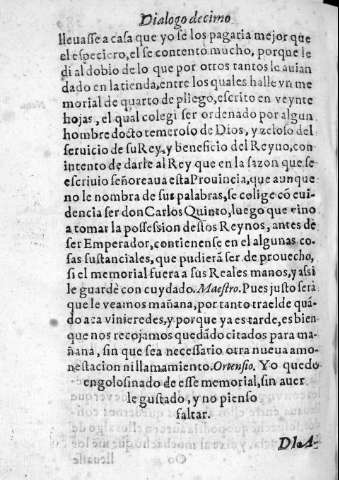 Dialogo decimo
lleuasse a casa que yo se los pagaria mejor que
el especiero, el se contentò mucho, porque le
di al dobio de lo que por otros tantos le auian
dado en la tienda, entre los quales hallè vn me
morial de quarto de pliego, escrito en veynte
hojas, el qual colegi ser ordenado por algun
hombre docto temeroso de Dios, y zeloso del
seruicio de su Rey, y beneficio del Reyno, con
intento de darle al Rey que en la sazon que se
escriuio señoreaua esta Prouincia, que aunque
no le nombra de sus palabras, se colige cō eui
dencia ser don Carlos Quinto, luego que vino
a tomar la possession destos Reynos, antes de
ser Emperador, contienense en el algunas co-
sas sustanciales, que pudierã ser de prouecho,
si el memorial fuera a sus Reales manos, y assi
le guardè con cuydado. Maestro. Pues justo serà
que le veamos mañana, por tanto traelde quã-
do aca vinieredes, y porque ya es tarde, es bien
que nos recojamos quedãdo citados para ma-
ñana, sin que sea necessario otra nueua amo-
nestacion ni llamamiento. Ortensio. Yo quedo
engolosinado de esse memorial, sin auer
le gustado, y no pienso
faltar.
DIA-